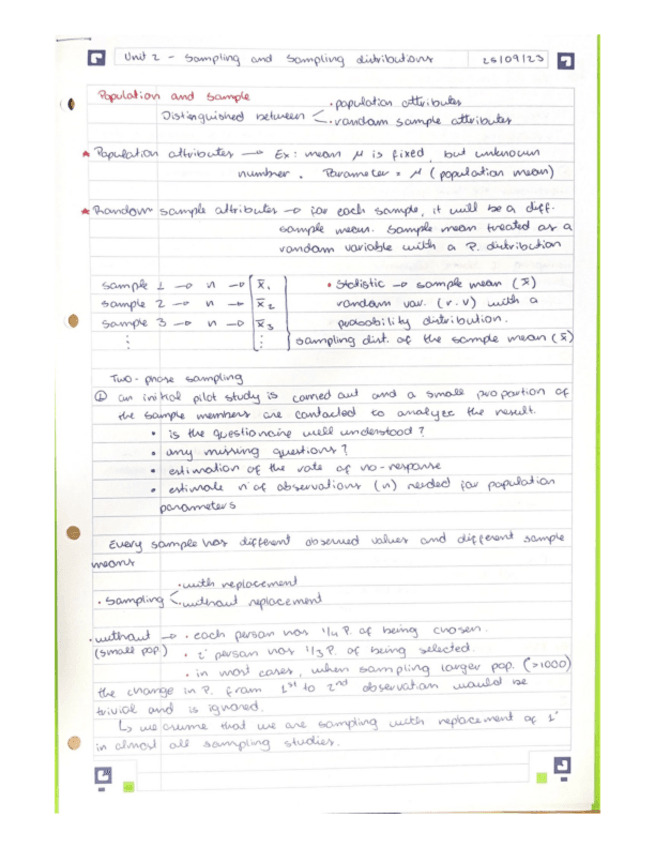 Unit 2 - Sampling and Sampling distributions 25/09/23
Population and Sample
Distinguished between
· population attributes
· random sample attributes
* Population attributes → Ex: mean μ is fixed, but unknown
number. Parameter = μ (population mean)
* Random sample attributes → for each sample, it will be a diff.
sample mean. Sample mean treated as a
random variable with a P. distribution
Sample 1 → n → x̄₁
Sample 2 → n → x̄₂
Sample 3 → n → x̄₃
• Statistic → sample mean (x̄)
random var. (r.v) with a
probability distribution.
Sampling dist. of the sample mean (x̄)
Two-phase sampling
① an initial pilot study is carried out and a small proportion of
the sample members are contacted to analyze the result.
• is the questionaire well understood?
• any missing questions?
• estimation of the rate of no-response
• estimate nº of observations (n) needed for population
parameters
Every sample has different observed values and different sample
means
· Sampling
· with replacement
· without replacement
· without → · each person has 1/4 P. of being chosen.
(small pop.) · 2' person has 1/3 P. of being selected.
· in most cases, when sampling larger pop. (>1000)
the change in P. from 1st to 2nd observation would be
trivial and is ignored.
↳ we assume that we are sampling with replacement of 1'
in almost all sampling studies.